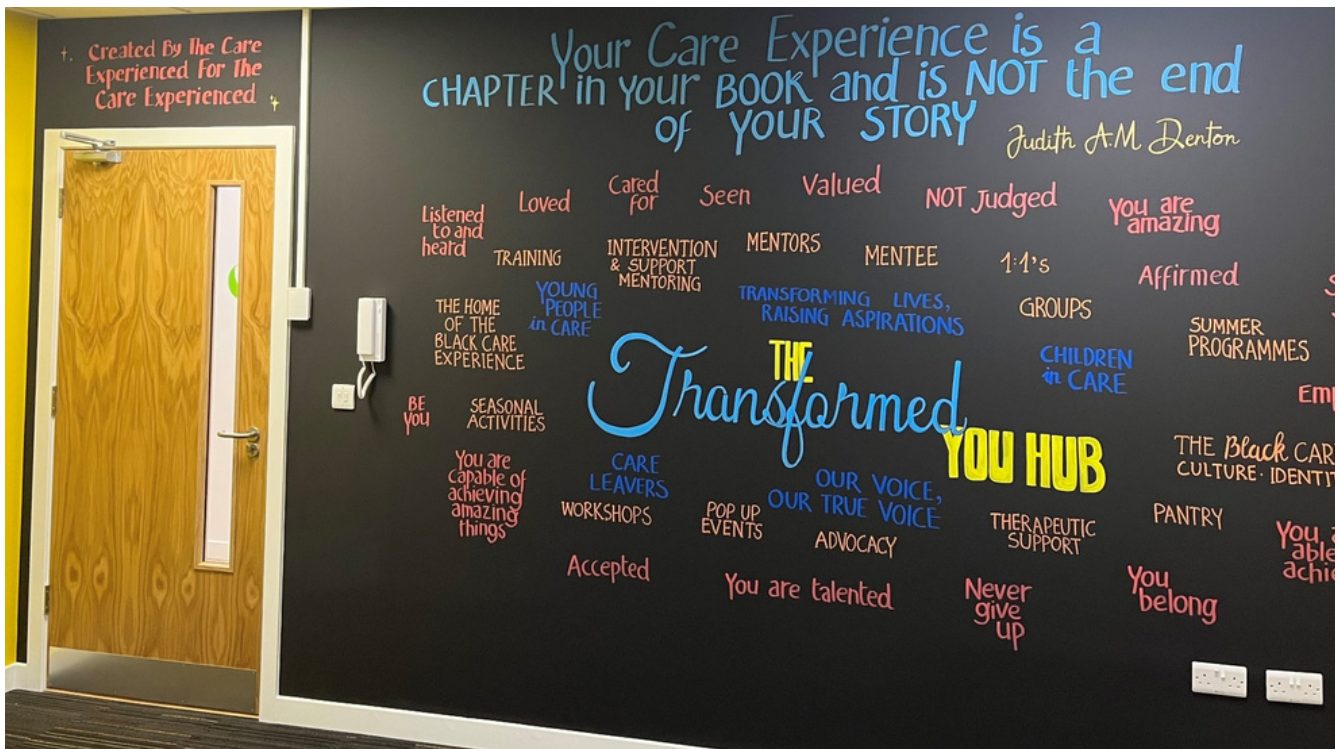 Created By The Care
Experienced For The
Care Experienced
Your Care Experience is a
CHAPTER in your BOOK and is NOT the end
of YOUR STORY
Judith A.M Denton
Listened
to and
heard
Loved
Cared
for
Seen
Valued
NOT Judged
You are
amazing
TRAINING
INTERVENTION
& SUPPORT
MENTORING
MENTORS
MENTEE
1:1's
Affirmed
THE HOME
OF THE
BLACK CARE
EXPERIENCE
YOUNG
PEOPLE
in CARE
TRANSFORMING LIVES,
RAISING ASPIRATIONS
GROUPS
SUMMER
PROGRAMMES
CHILDREN
in CARE
THE
Transformed
YOU HUB
BE
YOU
SEASONAL
ACTIVITIES
THE Black
CULTURE.
You are
capable of
achieving
amazing
things
CARE
LEAVERS
OUR VOICE,
OUR TRUE VOICE
WORKSHOPS
POP UP
EVENTS
ADVOCACY
THERAPEUTIC
SUPPORT
PANTRY
You
Accepted
You are talented
Never
give
up
You
belong